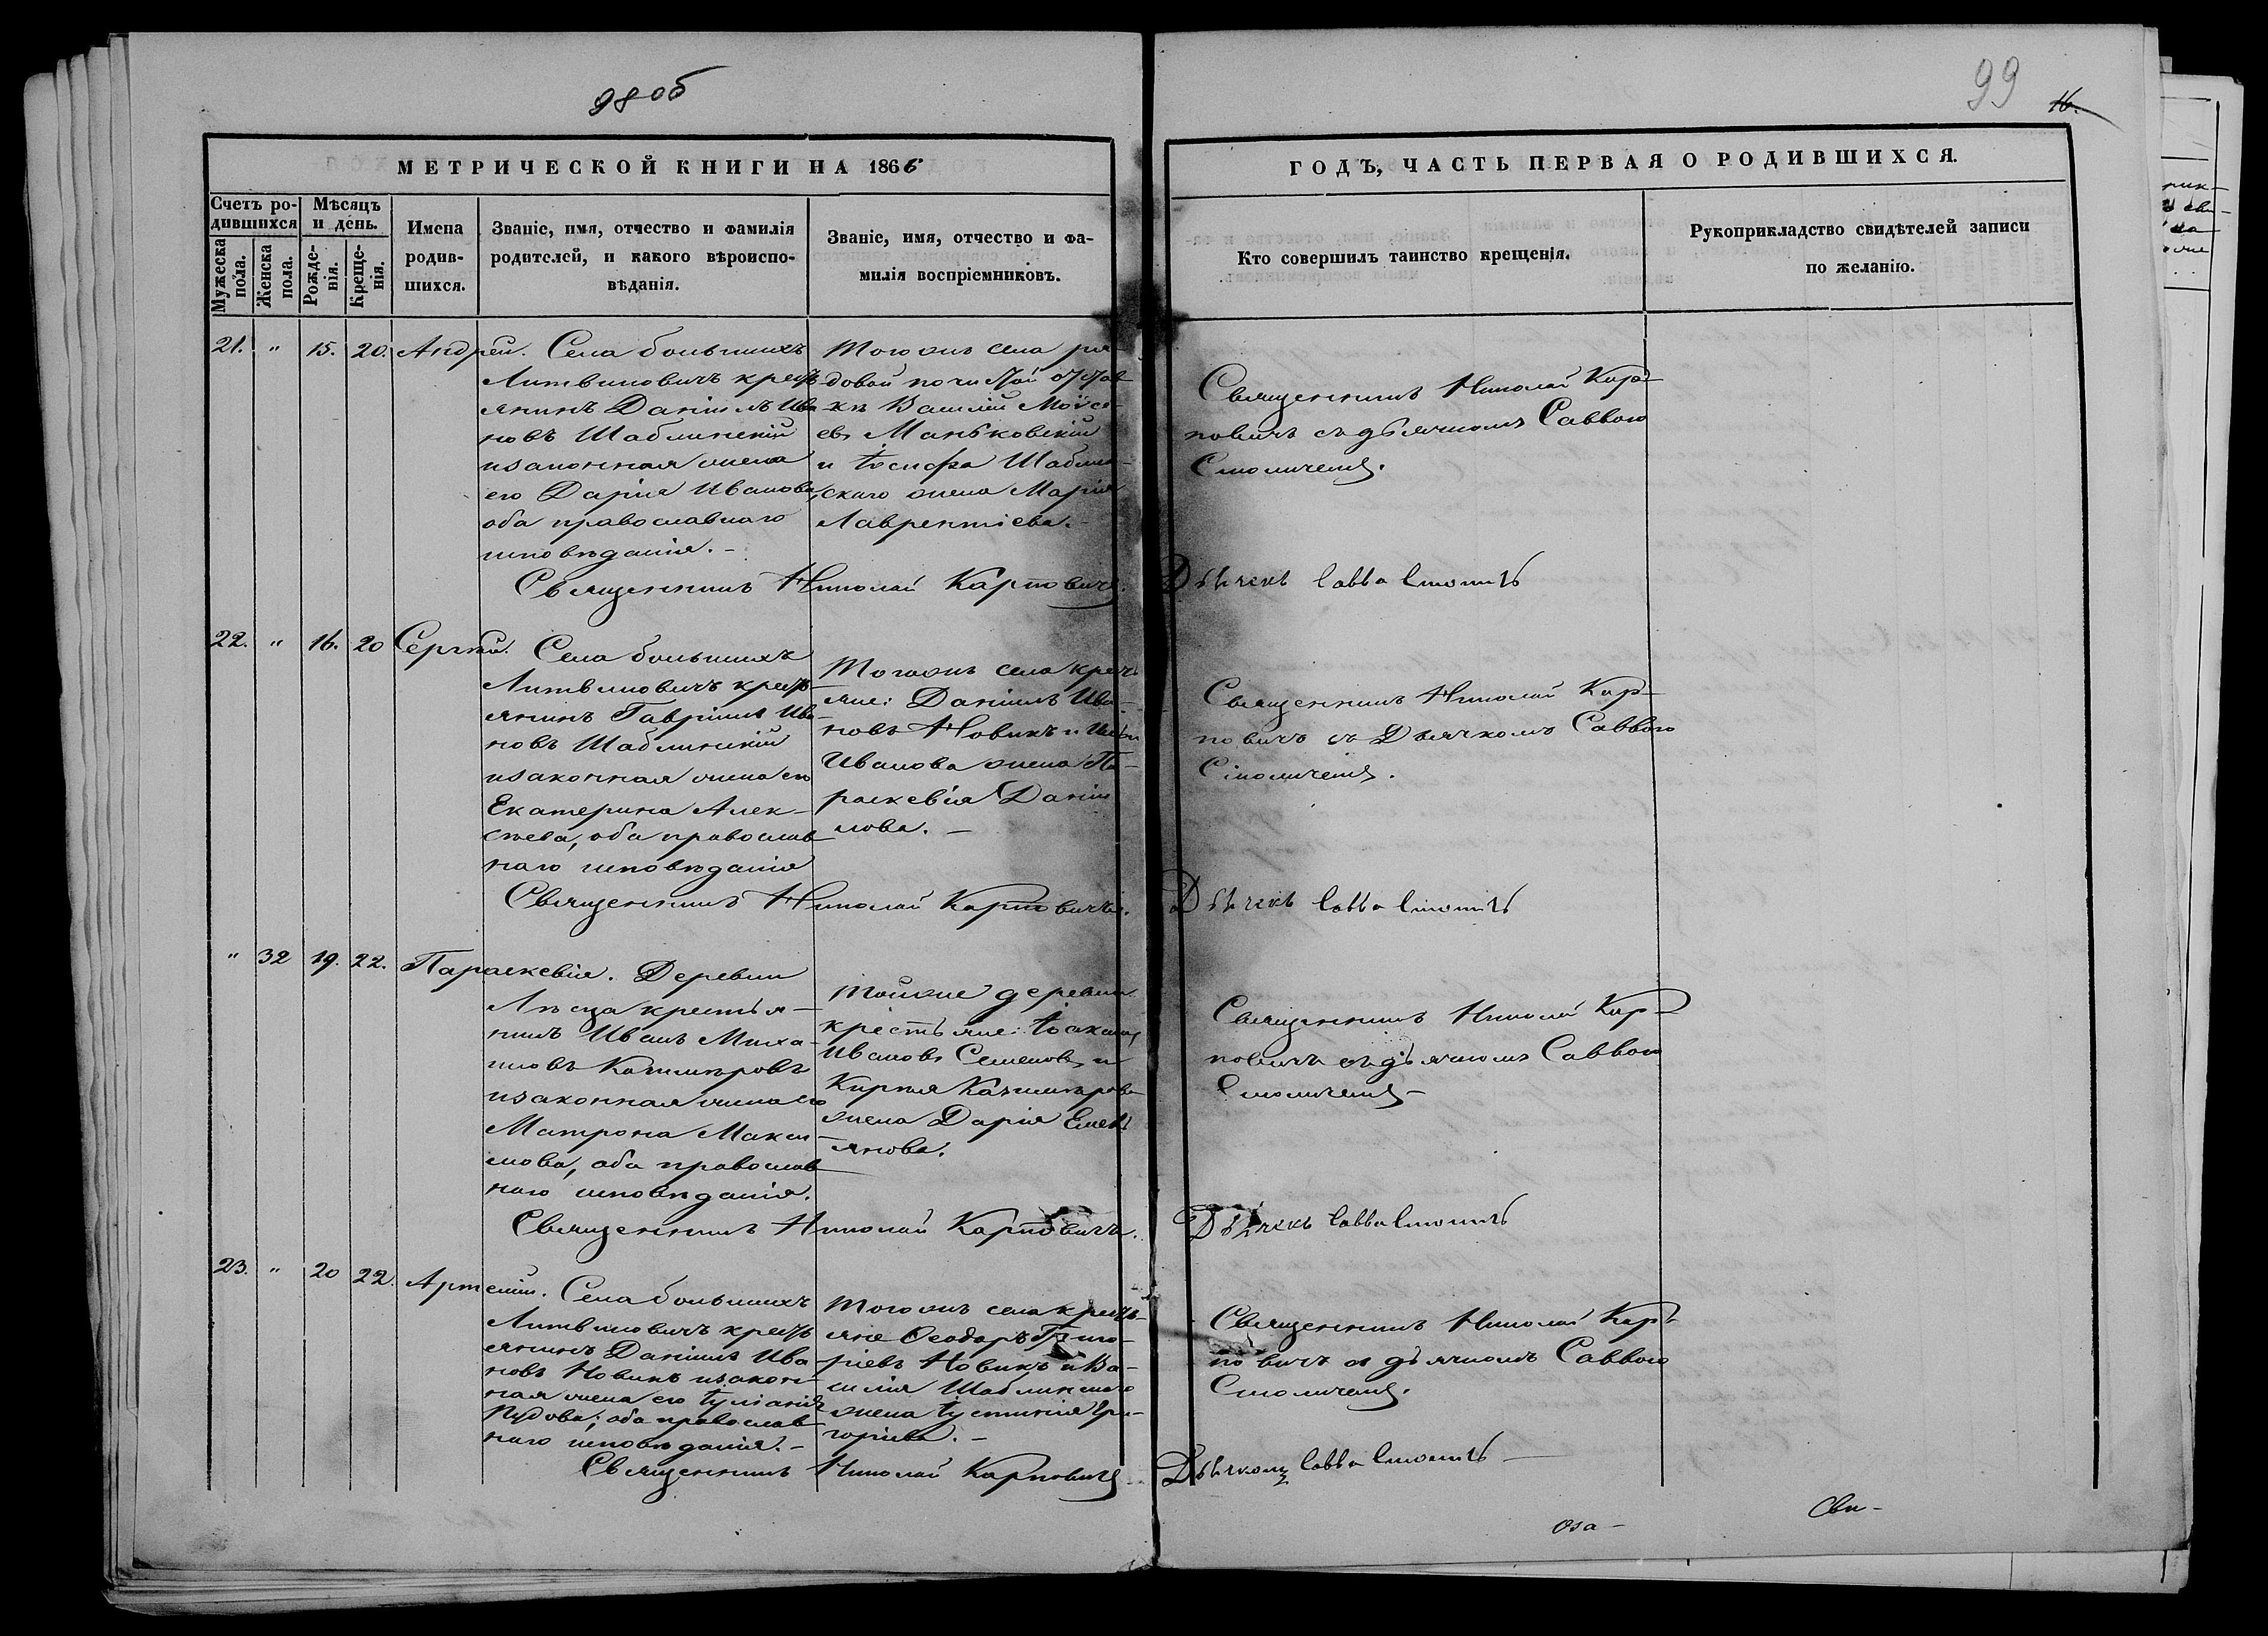 98 об
99
16.
МЕТРИЧЕСКОЙ КНИГИ НА 1866
ГОДЪ, ЧАСТЬ ПЕРВАЯ О РОДИВШИХСЯ.
Счетъ ро-
дившихся
Мужеска пола.
Женска пола.
Мѣсяцъ
и день.
Рожде-
нія.
Креще-
нія.
Имена
родив-
шихся.
Званіе, имя, отчество и фамилія
родителей, и какого вѣроиспо-
вѣданія.
Званіе, имя, отчество и фа-
милія воспріемниковъ.
Кто совершилъ таинство крещенія.
Рукоприкладство свидѣтелей записи
по желанію.
21. " 15. 20. Андрей.
Села большихъ
Литвиновичъ кресть
янинъ Даніилъ Ива
новъ Шаблинскій
изаконная жена
его Дарія Иванова,
оба православнаго
исповѣданія.-
Тогожъ села ря-
довой почистой отстав
ки Василій Моѵсе-
евъ Маньковскій
и Іосифа Шаблин-
скаго жена Марія
Лаврентіева.-
Священникъ Николай Кар-
повичъ съ дьячкомъ Саввою
Священникъ Николай Карповичъ.
Дьячекъ Савва
22. " 16. 20 Сергѣй.
Села большихъ
Литвиновичъ кресть
янинъ Гавріилъ Ива-
новъ Шаблинскій
изаконная жена его
Екатерина Алек-
сѣева, оба православ
наго исповѣданія
Тогожъ села кресть
яне: Даніилъ Ива-
новъ Новикъ и
Иванова жена Па-
раскевія Даніи
лова. -
Священникъ Николай Кар-
повичъ съ Дьячкомъ Саввою
Священникъ Николай Карповичъ.
Дьячекъ Савва
" 32 19. 22. Параскевія.
Деревни
Лѣсца крестья-
нинъ Иванъ Миха-
иловъ Казимѣровъ
изаконная жена его
Матрона Макси
мова, оба православ
наго исповѣданія.
Тойже деревни
крестьяне: Іоакимъ
Ивановъ Семеновъ и
Кирѣя Казимѣрова
жена Дарія Емель
янова.
Священникъ Николай Кар-
повичъ съ дьячкомъ Саввою
Священникъ Николай Карповичъ.
Дьячекъ Савва
23. " 20 22. Артемій.
Села большихъ
Литвиновичъ кресть
янинъ Даніилъ Ива
новъ Новикъ изакон-
ная жена его Іуліанія
оба православ
наго исповѣданія.-
Тогожъ села кресть-
яне Ѳеодоръ Григо-
ріевъ Новикъ и Ва-
силія Шаблинскаго
жена Іустинія Гри-
горіева. -
Священникъ Николай Кар-
повичъ съ дьячкомъ Саввою
Священникъ Николай Карповичъ
Савва